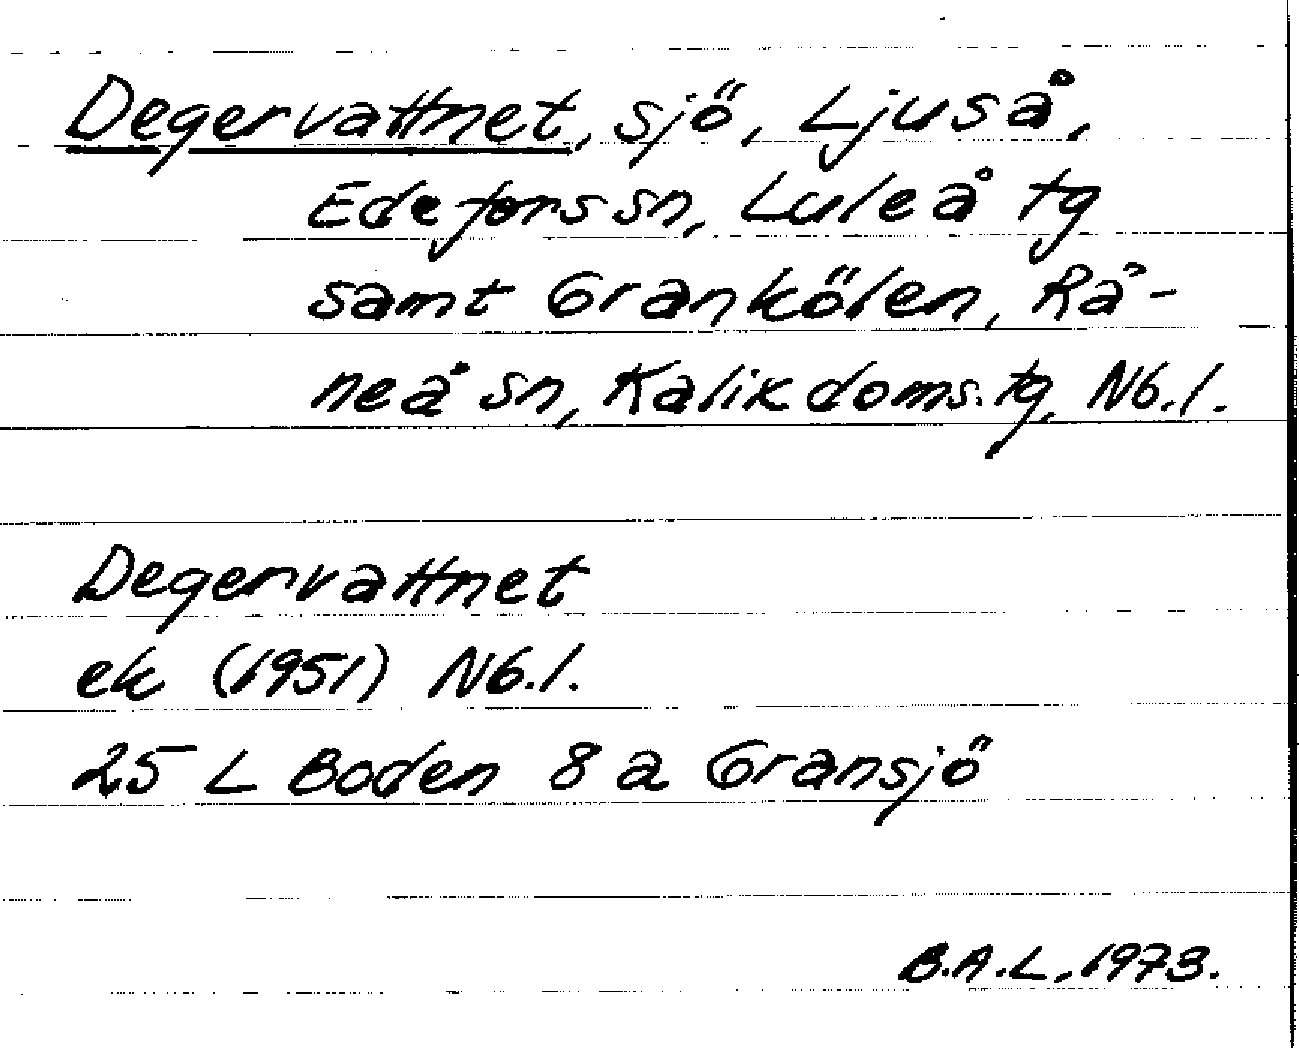 Degervattnet, sjö, Ljuså,
Edefors sn, Luleå tg
samt Grankölen, Rå-
neå sn, Kalix doms. tg, Nb. l.
Degervattnet
ek (1951) Nb. l.
25 L Boden 8 a Gransjö
B.A.L. 1973.